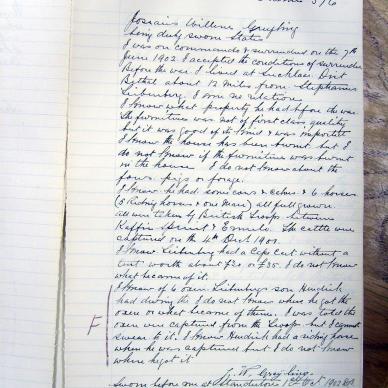 Josias Willem Greyling
being duly sworn States
I was on commando & surrendered on the 7th
June 1902 I accepted the conditions of surrender
Before the war I lived at
Bethal about 12 miles from Stephanus
Liebenberg. I am no relation
I know what property he had before the war.
The furniture was not of first class quality
but it was good of its kind & was imported
I know the house has been burnt but I
do not know if the furniture was burnt
in the house. I do not know about the
fowls pigs or forage.
I know he had some cows & & 6 horses
(5 Riding horses & one Mare) all full grown.
all were taken by British troops between
Kaffir Spruit & Ermelo. The cattle were
captured on the 4th Dec 1901.
I know Liebenberg had a Cape Cart without a
tent worth about £30 or £35. I do not know
what became of it.
I know of 6 oxen Liebenberg's son Hendrik
had during the I do not know where he got the
oxen or what became of them. I was told the
oxen were captured from the troops but I cannot
swear to it. I know Hendrik had a riding horse
when he was captured but I do not know
where he got it
F
J. W. Greyling
Sworn before me at Standerton 1902